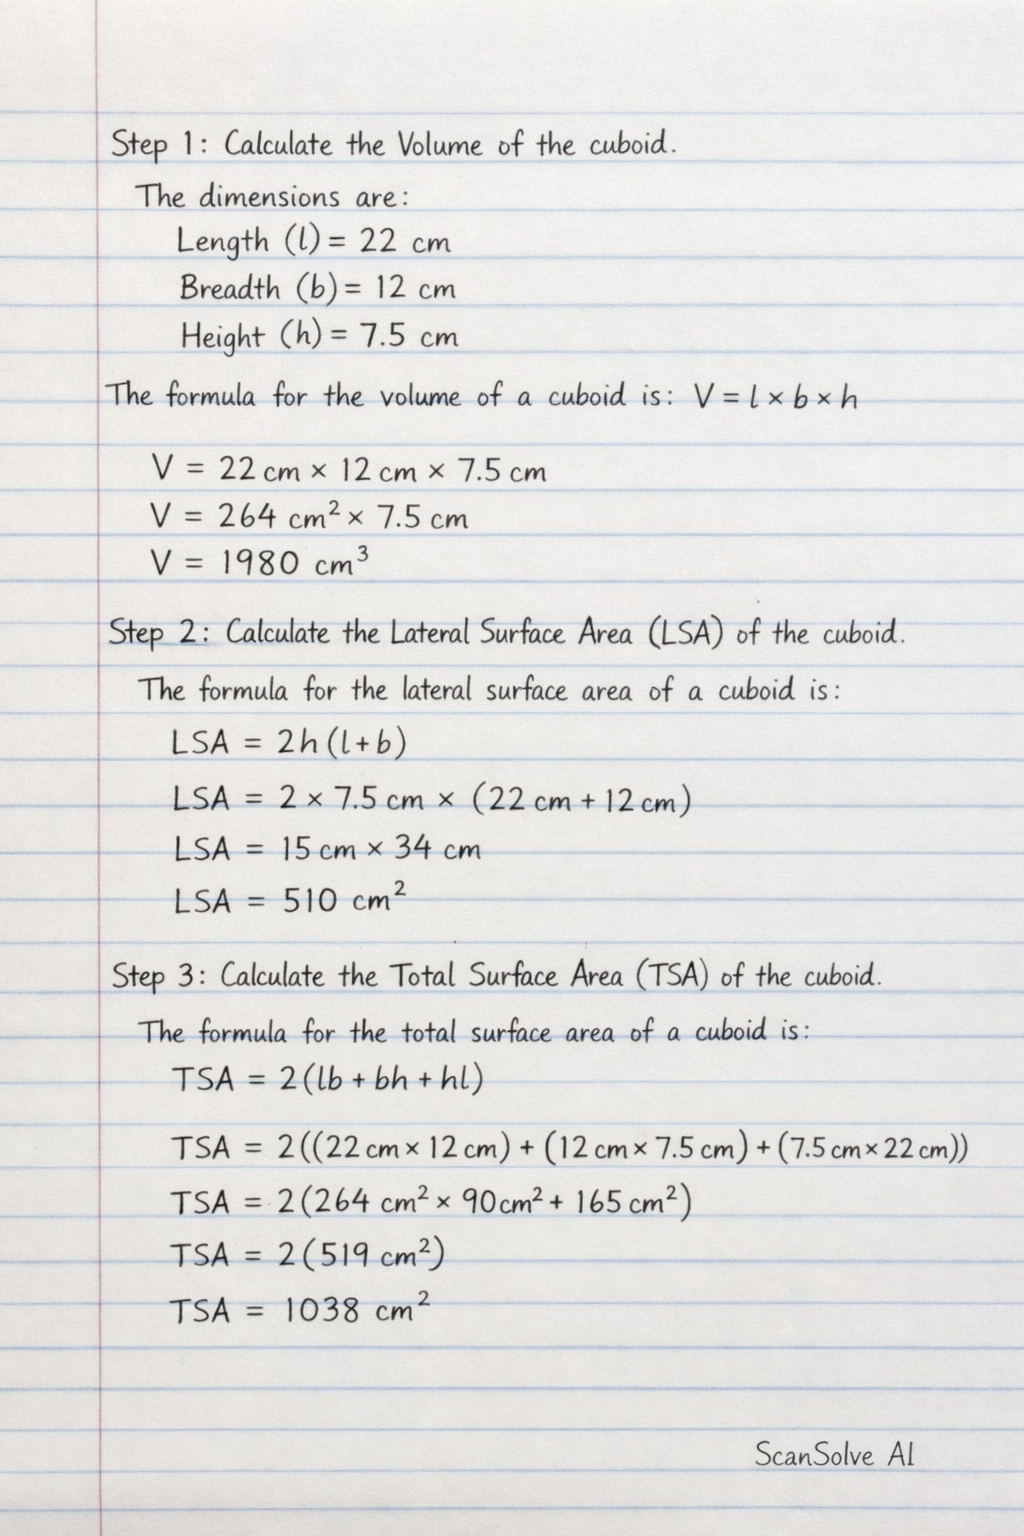 Step 1: Calculate the Volume of the cuboid.
The dimensions are:
Length (l) = 22 cm
Breadth (b) = 12 cm
Height (h) = 7.5 cm
The formula for the volume of a cuboid is: V = l × b × h
V = 22 cm × 12 cm × 7.5 cm
V = 264 cm² × 7.5 cm
V = 1980 cm³
Step 2: Calculate the Lateral Surface Area (LSA) of the cuboid.
The formula for the lateral surface area of a cuboid is:
LSA = 2h (l + b)
LSA = 2 × 7.5 cm × (22 cm + 12 cm)
LSA = 15 cm × 34 cm
LSA = 510 cm²
Step 3: Calculate the Total Surface Area (TSA) of the cuboid.
The formula for the total surface area of a cuboid is:
TSA = 2(lb + bh + hl)
TSA = 2((22 cm × 12 cm) + (12 cm × 7.5 cm) + (7.5 cm × 22 cm))
TSA = 2(264 cm² × 90 cm² + 165 cm²)
TSA = 2(519 cm²)
TSA = 1038 cm²
ScanSolve AI